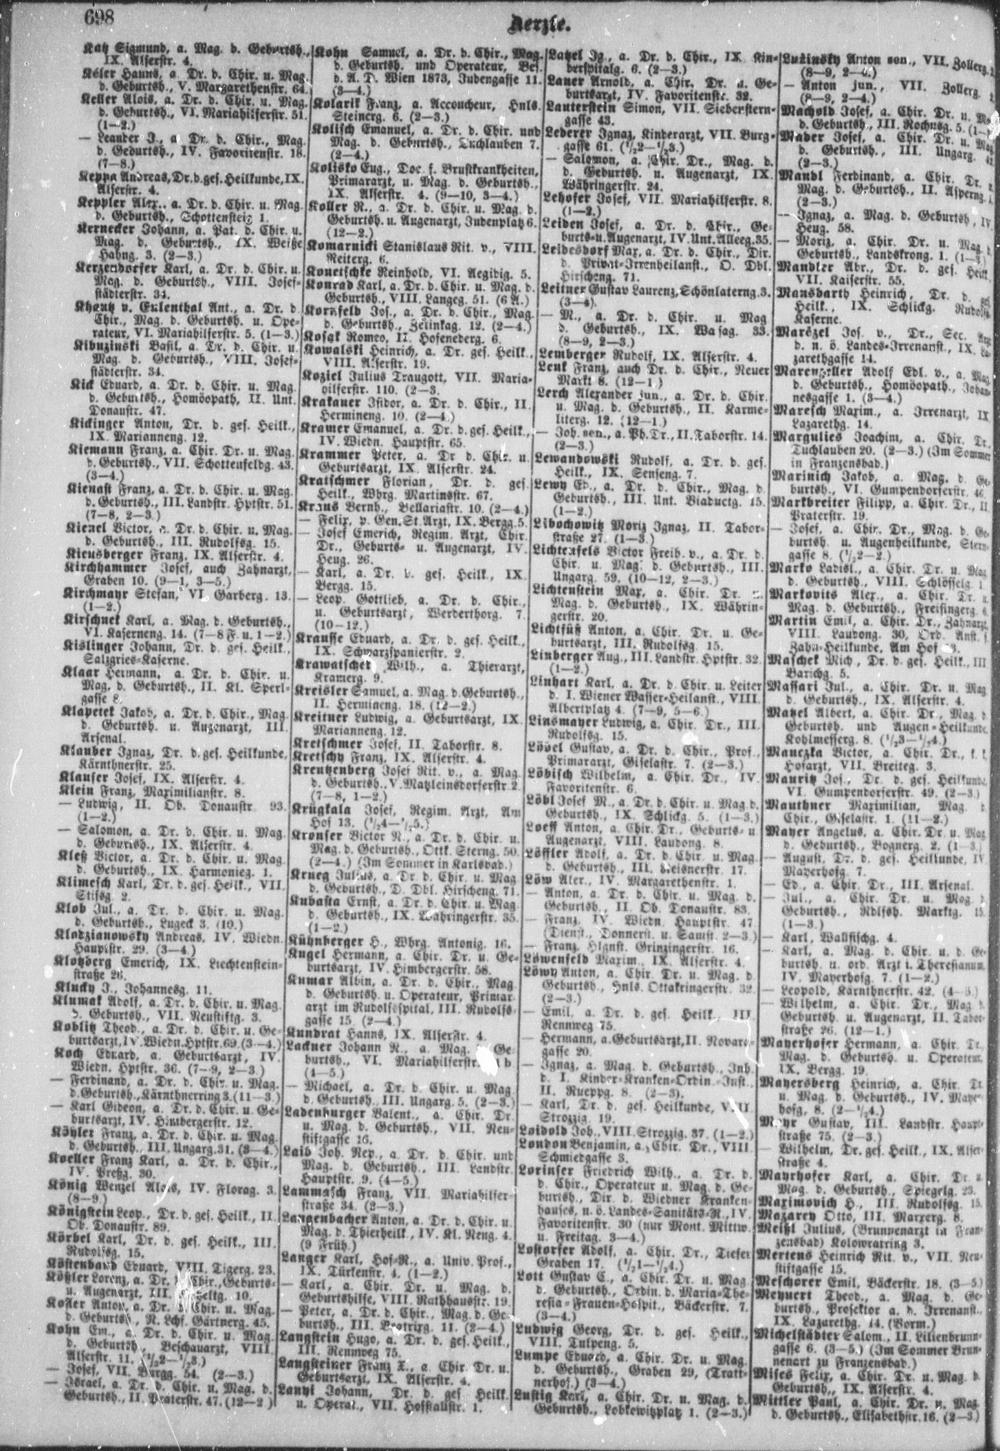 698
Aerzte.
Katz Sigmund, a. Mag. d. Geburtsh.,
IX. Alserstr. 4.
Keler Hanns, a. Dr. d. Chir. u. Mag.
d. Geburtsh., V. Margarethenstr. 64.
Keller Alois, a. Dr. d. Chir. u. Mag.
d. Geburtsh., VI. Mariahilferstr. 51.
(1—2.)
— Leander J., a. Dr. d. Chir., Mag.
d. Geburtsh., IV. Favoritenstr. 18.
(7—8.)
Keppa Andreas, Dr. d. ges. Heilkunde, IX.
Alserstr. 4.
Keppler Alex., a. Dr. d. Chir. u. Mag.
d. Geburtsh., Schottensteig 1.
Kernecker Johann, a. Pat. d. Chir. u.
Mag. d. Geburtsh., IX. Weiße
Hahng. 3. (2—3.)
Kerzendorfer Karl, a. Dr. d. Chir. u.
Mag. d. Geburtsh., VIII. Josef-
städterstr. 34.
Khautz v. Eulenthal Ant., a. Dr. d.
Chir., Mag. d. Geburtsh. u. Ope-
rateur, VI. Mariahilferstr. 5. (1—3.)
Kibuzinski Basil, a. Dr. d. Chir. u.
Mag. d. Geburtsh., VIII. Josef-
städterstr. 34.
Kick Eduard, a. Dr. d. Chir. u. Mag.
d. Geburtsh., Homöopath, II. Unt.
Donaustr. 47.
Kickinger Anton, Dr. d. ges. Heilk.,
IX. Marianneng. 12.
Kiemann Franz, a. Chir. Dr. u. Mag.
d. Geburtsh., VII. Schottenfeldg. 43.
(3—4.)
Kienast Franz, a. Dr. d. Chir. u. Mag.
d. Geburtsh., III. Landstr. Hptstr. 51.
(7—8, 2—3.)
Kienel Victor, a. Dr. d. Chir. u. Mag.
d. Geburtsh., III. Rudolfsg. 15.
Kiensberger Franz, IX. Alserstr. 4.
Kirchhammer Josef, auch Zahnarzt,
Graben 10. (9—1, 3—5.)
Kirchmayr Stefan, VI Garberg. 13.
(1—2.)
Kirschnet Karl, a. Mag. d. Geburtsh.,
VI. Kaserneng. 14. (7—8 F. u. 1—2.)
Kislinger Johann, Dr. d. ges. Heilk.,
Salzgries-Kaserne.
Klaar Hermann, a. Dr. d. Chir. u.
Mag. d. Geburtsh., II. Kl. Sperl-
gasse 8.
Klapetek Jakob, a. Dr. d. Chir., Mag.
d. Geburtsh. u. Augenarzt, III.
Arsenal.
Klauber Ignaz, Dr. d. ges. Heilkunde,
Kärnthnerstr. 25.
Klauser Josef, IX. Alserstr. 4.
Klein Franz, Maximilianstr. 8.
— Ludwig, II. Ob. Donaustr. 93.
(1—2.)
— Salomon, a. Dr. d. Chir. u. Mag.
d. Geburtsh., IX. Alserstr. 4.
Kleß Victor, a. Dr. d. Chir. u. Mag.
d. Geburtsh., IX. Harmonieg. 1.
Klimesch Karl, Dr. d. ges. Heilk., VII.
Stiftg. 2.
Klob Jul., a. Dr. d. Chir. u. Mag.
d. Geburtsh., Lugeck 3. (10.)
Klodzianowsky Andreas, IV. Wiedn.
Hauptstr. 29. (3—4.)
Klotzberg Emerich, IX. Liechtenstein-
straße 26.
Klucky J., Johannesg. 11.
Klumak Adolf, a. Dr. d. Chir. u. Mag.
d. Geburtsh., VII. Neustiftg. 3.
Koblitz Theod., a. Dr. d. Chir. u. Ge-
burtsarzt, IV. Wiedn. Hptstr. 69. (3—4.)
Koch Eduard, a. Geburtsarzt, IV.
Wiedn. Hptstr. 36. (7—9, 2—3.)
— Ferdinand, a. Dr. d. Chir. u. Mag.
d. Geburtsh., Kärnthnerring 3. (11—3.)
— Karl Gideon, a. Dr. d. Chir. u. Ge-
burtsarzt, IV. Himbergerstr. 12.
Köhler Franz, a. Dr. d. Chir. u. Mag.
d. Geburtsh., III. Ungarg. 31. (3—4.)
Koeller Franz Karl, a. Dr. d. Chir.,
IV. Preßg. 30.
König Wenzel Alois, IV. Florag. 3.
(8—9.)
Königstein Leop., Dr. d. ges. Heilk., II.
Ob. Donaustr. 89.
Körbel Karl, Dr. d. ges. Heilk., III.
Rudolfsg. 15.
Köstenband Eduard, VIII. Tigerg. 23.
Kößler Lorenz, a. Dr. Chir., Geburts-
u. Augenarzt, III. 10.
Kofler Anton, a. Dr. d. Chir. u. Mag.
d. Geburtsh., N. Lchf. Gärtnerg. 45.
Kohn Em., a. Dr. d. Chir. u. Mag.
d. Geburtsh., Beschauarzt, VIII.
Alserstr. 11.
— Josef, VII. Burgg. 54. (2—3.)
— Israel, a. Dr. d. Chir. u. Mag. d.
Geburtsh., II. Praterstr. 47. (12—2)
Kohn Samuel, a. Dr. d. Chir., Mag.
d. Geburtsh. und Operateur, Bes.
d. A. T. Wien 1873, Judengasse 11.
(3—4.)
Kolarik Franz, a. Accoucheur, Hnls.
Steinerg. 6. (2—3.)
Kolisch Emanuel, a. Dr. d. Chir. und
Mag. d. Geburtsh., Tuchlauben 7.
(2—4.)
Kolisko Eug., Doc. f. Brustkrankheiten,
Primararzt, u. Mag. d. Geburtsh.,
IX. Alserstr. 4. (9—10, 3—4.)
Koller R., a. Dr. d. Chir. u. Mag. d.
Geburtsh. u. Augenarzt, Judenplatz 6.
(12—2.)
Komarnicki Stanislaus Rit. v., VIII.
Reiterg. 6.
Konetschke Reinhold, VI. Aegidig. 5.
Konrad Karl, a. Dr. d. Chir. u. Mag. d.
Geburtsh., VIII. Langeg. 51. (6 A.)
Kornfeld Jos., a. Dr. d. Chir., Mag.
d. Geburtsh., Zelinkag. 12. (2—4.)
Kosak Romeo, II. Hofeneberg. 6.
Kowalski Heinrich, a. Dr. ges. Heilk.,
VIII. Alserstr. 19.
Koziel Julius Traugott, VII. Maria-
hilferstr. 110. (2—3.
Krakauer Isidor, a. Dr. d. Chir., II.
Hermineng. 10. (2—4.)
Kramer Emanuel, a. Dr. d. ges. Heilk.,
IV. Wiedn. Hauptstr. 65.
Krammer Peter, a. Dr. d. Chir. u.
Geburtsarzt, IX. Alserstr. 24.
Kratschmer Florian, Dr. d. ges.
Heilk., Whrg. Martinsstr. 67.
Kraus Bernh., Bellariastr. 10. (2—4.)
— Felix, p. Gen. St. Arzt, IX. Bergg. 5.
— Josef Emerich, Regim. Arzt, Chir.
Dr., Geburts- u. Augenarzt, IV.
Heug. 26.
— Karl, a. Dr. d. ges. Heilk., IX.
Bergg. 15.
— Leop. Gottlieb, a. Dr. d. Chir.,
u. Geburtsarzt, Werderthorg. 7.
(10—12.)
Krausse Eduard, a. Dr. d. ges. Heilk.,
IX. Schwarzspanierstr. 2.
Krawatschek Wilh., a. Thierarzt,
Kramerg. 9.
Kreisler Samuel, a. Mag. d. Geburtsh.,
II. Hermineng. 18. (12—2.)
Kreitner Ludwig, a. Geburtsarzt, IX.
Marianneng. 12.
Kretschmer Josef, II. Taborstr. 8.
Kretschy Franz, IX. Alserstr. 4.
Kreutzenberg Josef Rit. v., a. Mag.
d. Geburtsh., V. Matzleinsdorferstr 2.
(7—8, 1—2.)
Krügkala Josef, Regim. Arzt, Am
Hof 13. (1/24—1/25.)
Kronser Victor N., a. Dr. d. Chir. u.
Mag. d. Geburtsh., Ott. Sterng. 50.
(2—4.) (Im Sommer in Karlsbad.)
Krueg Julius, a. Dr. d. Chir. u. Mag.
d. Geburtsh., D. Dbl. Hirscheng. 71.
Kubasta Ernst, a. Dr. d. Chir. u. Mag.
d. Geburtsh., IX. Währingerstr. 35.
(1—2.)
Kühnberger H., Whrg. Antonig. 16.
Kugel Hermann, a. Chir. Dr. u. Ge-
burtsarzt, IV. Himbergerstr. 58.
Kumar Albin, a. Dr. d. Chir., Mag.
d. Geburtsh. u. Operateur, Primar-
arzt im Rudolfsspital, III. Rudolfs-
gasse 15 (2—4.)
Kundrat Hanns, IX. Alserstr. 4.
Lackner Johann N., a. Mag. d. Ge-
burtsh., VI. Mariahilferstr. b
(4—5.)
— Michael, a. Dr. d. Chir. u. Mag.
d. Geburtsh., III. Ungarg. 5. (2—3.)
Ladenburger Valent., a. Chir. Dr.
u. Mag. d. Geburtsh., VII. Neu-
stiftgasse 16.
Laib Joh. Nep., a. Dr. d. Chir. und
Mag. d. Geburtsh., III. Landstr.
Hauptstr. 9. (4—5.)
Lammasch Franz, VII. Mariahilfer-
straße 34. (2—3.)
Langenbacher Anton, a. Dr. d. Chir. u.
Mag. d. Thierheilk., IV. Kl. Neug. 4.
(9 Früh.)
Langer Karl, Hof-R., a. Univ. Prof.,
IX. Türkenstr. 4. (1—2.)
— Karl, a. Dr. d. Chir. u. Mag. d.
Geburtshilfe, VIII. Rathhausstr. 19.
— Peter, a. Dr. d. Chir., Mag. d. Ge-
burtsh., III. 11. (3—4.)
Langstein Hugo, a. Dr. d. ges. Heilk.,
III. Rennweg 75.
Langsteiner Franz X., a. Chir. Dr. u.
Geburtsarzt, IX. Alserstr. 4.
Lanyi Johann, Dr. d. ges Heilk.
u. Operat., VII. Hofstallstr. 1.
Latzel Ig., a. Dr. d. Chir., IX. Kin-
derspitalg. 6. (2—3.)
Lauer Arnold, a. Chir. Dr. d. Ge-
burtsarzt, IV. Favoritenstr. 32.
Lauterstein Simon, VII. Siebenstern-
gasse 43.
Lederer Ignaz, Kinderarzt, VII. Burg-
gasse 61. (1/22—1/23.)
— Salomon, a. Chir. Dr., Mag. d.
d. Geburtsh. u. Augenarzt, IX.
Währingerstr. 24.
Lehofer Josef, VII. Mariahilferstr. 8.
(1—2.)
Leiden Josef, a. Dr. d. Chir., Ge-
burts- u. Augenarzt, IV. Unt. Alleeg. 35.
Leidesdorf Max, a. Dr. d. Chir., Dir.
d. Privat-Irrenheilanst., O. Dbl.
Hirscheng. 71.
Leitner Gustav Laurenz, Schönlaterng. 3.
(3—4).
— M., a. Dr. d. Chir. u. Mag.
d. Geburtsh., IX. Wasag. 33.
(8—9, 2—3.)
Lemberger Rudolf, IX. Alserstr. 4.
Lenk Franz, auch Dr. d. Chir., Neuer
Markt 8. (12—1.)
Lerch Alexander jun., a. Dr. d. Chir.
u. Mag. d. Geburtsh., II. Karme-
literg. 12. (12—1.)
— Joh. sen., a. Ph. Dr., II. Taborstr. 14.
(2—3.)
Lewandowski Rudolf, a. Dr. d. ges.
Heilk., IX. Senseng. 7.
Lewy Ed., a. Dr. d. Chir., Mag. d.
Geburtsh., III. Unt. Viaductg. 15.
(1—2.)
Libochowitz Moriz Ignaz, II. Tabor-
straße 27. (1—3.)
Lichtenfels Victor Freih. v., a. Dr. d.
Chir. u. Mag. d. Geburtsh., III.
Ungarg. 59. (10—12, 2—3.)
Lichtenstein Max, a. Chir. Dr.
Mag. d. Geburtsh., IX. Währin-
gerstr. 20.
Lichtsüß Anton, a. Chir. Dr. u. Ge-
burtsarzt, III. Rudolfsg. 15.
Linberger Aug., III. Landstr. Hptstr. 32.
(1—2.)
Linhart Karl, a. Dr. d. Chir. u. Leiter
d. I. Wiener Wasser-Heilanst., VIII.
Albertplatz 4. (7—9, 5—6.)
Linsmayer Ludwig, a. Chir. Dr., III.
Rudolfsg. 15.
Löbel Gustav, a. Dr. d. Chir., Prof.,
Primararzt, Giselastr. 7. (2—3.)
Löbisch Wilhelm, a. Chir. Dr., IV.
Favoritenstr. 6.
Löbl Josef M., a. Dr. d. Chir. u. Mag. d.
Geburtsh., IX. Schlickg. 5. (1—3.)
Loeff Anton, a. Chir. Dr., Geburts- u.
Augenarzt, VIII. Laudong. 8.
Löffler Adolf, a. Dr. d. Chir. u. Mag.
d. Geburtsh., III. Geisnerstr. 17.
Löw Alex., IV. Margarethenstr. 1.
— Anton, a. Dr. d. Chir. u. Mag. d.
Geburtsh., II. Ob. Donaustr. 83.
— Franz, IV. Wiedn. Hauptstr. 47
(Dienst., Donnerst. u. Samst. 2—3.)
— Franz, Hlgnst. Grinzingerstr. 16.
Löwenfeld Maxim., IX. Alserstr. 4.
Löwy Anton, a. Dr. d. Chir. u. Mag. d.
Geburtsh., Hnls. Ottakringerstr. 32.
(2—3.)
— Emil, a. Dr. d. ges. Heilk., III.
Rennweg 75.
— Hermann, a. Geburtsarzt, II. Novara-
gasse 20.
— Ignaz, a. Mag. d. Geburtsh., Inh.
d. I. Kinder-Kranken-Ordin.-Inst.,
II. Rueppg. 8. (2—3).
— Karl, Dr. d. ges. Heilkunde, VIII.
Strozzig. 19.
Loidold Joh., VIII. Strozzig. 37. (1—2.)
London Benjamin, a. Chir. Dr., VIII.
Schmiedgasse 3.
Lorinser Friedrich Wilh., a. Dr. d.
d. Chir., Operateur u. Mag. d. Ge-
burtsh., Dir. d. Wiedner Kranken-
hauses, n. ö. Landes-Sanitäts-R., IV.
Favoritenstr. 30 (nur Mont. Mittw.
u. Freitag. 3—4.)
Lostorfer Adolf, a. Chir. Dr., Tiefer
Graben 17. (1/21—1/24.)
Lott Gustav C., a. Chir. Dr. u. Mag.
d. Geburtsh., Ordin. d. Maria-The-
resia-Frauen-Hospit., Bäckerstr. 7.
(3—4.)
Ludwig Georg, Dr. d. ges. Heilk.,
VIII. Tulpeng. 5.
Lumpe Eduard, a. Chir. Dr. u. Mag.
d. Geburtsh., Graben 29, (Tratt-
nerhof.) (3—4.)
Lustig Karl, a. Chir. Dr. u. Mag. d.
Geburtsh., Lobkowitzplatz 1. (2—3.)
Lužinsky Anton sen., VII. Zollerg.
(8—9, 2—4.)
— Anton jun., VII. Zollerg.
(8—9, 2—4.)
Machold Josef, a. Chir. Dr. u. Mag.
d. Geburtsh., III. Rochusg. 5. (1—
Mader Josef, a. Chir. Dr. u. Mag.
d. Geburtsh., III. Ungarg.
(2—3.)
Mandl Ferdinand, a. Chir. Dr.
Mag. d. Geburtsh., II. Asperng.
(2—3.)
— Ignaz, a. Mag. d. Geburtsh., IV.
Heug. 58.
— Moriz, a. Chir. Dr. u. Mag. d.
Geburtsh., Landskrong. 1. (1—
Mandler Abr., Dr. d. ges. Heilk.
VII. Kaiserstr. 55.
Mansbarth Heinrich, Dr. d. ges.
Heilk., IX. Schlickg. Rudolfs-
Kaserne.
Maresch Jos. v., Dr., Sec. Arzt
d. n. ö. Landes-Irrenanst., IX. La-
zarethgasse 14.
Marenzeller Adolf Edl. v., a. Mag.
d. Geburtsh., Homöopath, Johan-
nesgasse 1. (3—4.)
Maresch Maxim., a. Irrenarzt, IX.
Lazarethg. 14.
Margulies Joachim, a. Chir. Dr.,
Tuchlauben 20. (2—3.) (Im Sommer
in Franzensbad.)
Marinich Jakob, a. Mag. d. Ge-
burtsh., VI. Gumpendorferstr. 46.
Markbreiter Filipp, a. Chir. Dr., II.
Praterstr. 19.
— Josef, a. Chir. Dr., Mag. d. Ge-
burtsh. u. Augenheilkunde, Stern-
gasse 8. (1/22—2.)
Marko Ladisl., a. Chir. Dr. u. Mag.
d. Geburtsh., VIII. Schlösselg.
Markovits Alex., a. Chir. Dr. u.
Mag. d. Geburtsh., Freisingerg.
Martin Emil, a. Chir. Dr., Zahnarzt,
VIII. Laudong. 30, Ord. Anst. f.
Zahn-Heilkunde, Am Hof 3.
Maschek Mich., Dr. d. ges. Heilk., III.
Barichg. 5.
Massari Jul., a. Chir. Dr. u. Mag.
d. Geburtsh., IX. Alserstr. 4.
Matzel Albert, a. Chir. Dr., Mag. d.
Geburtsh. und Augen-Heilkunde,
Kohlmesserg. 8. (1/23—1/24.)
Mauczka Victor, a. Chir. Dr., k. k.
Hofarzt, VII. Breiteg. 3.
Mauritz Jos., Dr. d. ges. Heilkunde,
VI. Gumpendorferstr. 49. (2—3.)
Mauthner Maximilian, Mag. d.
Chir., Giselastr. 1. (11—2.)
Mayer Angelus, a. Chir. Dr. u. Mag.
d. Geburtsh., Bognerg. 2. (1—3.)
— August, Dr. d. ges. Heilkunde, IV.
Mayerhofg. 7.
— Ed., a. Chir. Dr., III. Arsenal.
— Jul., a. Chir. Dr. u. Mag. d.
Geburtsh., Rdlfsh. Marktg. 15.
(1—3.)
— Karl, Wallfischg. 4.
— Karl, a. Chir. Dr. u. Mag. d. Ge-
burtsh. u. ord. Arzt i. Theresianum,
IV. Mayerhofg. 7. (1—2.)
— Leopold, Kärnthnerstr. 42. (4—5.)
— Wilhelm, a. Chir. Dr., Mag. d.
Geburtsh. u. Augenarzt, II. Tabor-
straße 26. (12—1.)
Mayerhofer Hermann, a. Chir. Dr.
Mag. d. Geburtsh. u. Operateur,
IX. Bergg. 19.
Mayersberg Heinrich, a. Chir. Dr.
u. Mag. d. Geburtsh., IV. Mayer-
hofg. 8. (2—1/24.)
Mayr Gustav, III. Landstr. Haupt-
straße 75. (2—3.)
— Wilhelm, Dr. ges. Heilk., IX. Alser-
straße 4.
Mayrhofer Karl, a. Chir. Dr. u.
Mag. d. Geburtsh., Spiegelg. 23.
Maximovich H., III. Rudolfsg. 15.
Mazareh Otto, III. Marxerg. 8.
Meißl Julius, (Brunnenarzt in Fran-
zensbad) Kolowratring 3.
Mertens Heinrich Rit. v., VII. Neu-
stiftgasse 15.
Meschorer Emil, Bäckerstr. 18. (3—5.)
Meynert Theod., a. Mag. d. Ge-
burtsh., Prosektor a. d. Irrenanst.,
IX. Lazarethg. 14. (Vorm.)
Michelstädter Salom., II. Lilienbrunn-
gasse 6. (3—5.) (Im Sommer Brun-
nenarzt zu Franzensbad.)
Mises Felix, a. Chir. Dr. u. Mag. d.
Geburtsh., IX. Alserstr. 4.
Mittler Paul, a. Chir. Dr. u. Mag.
d. Geburtsh., Elisabethstr. 16. (2—3.)